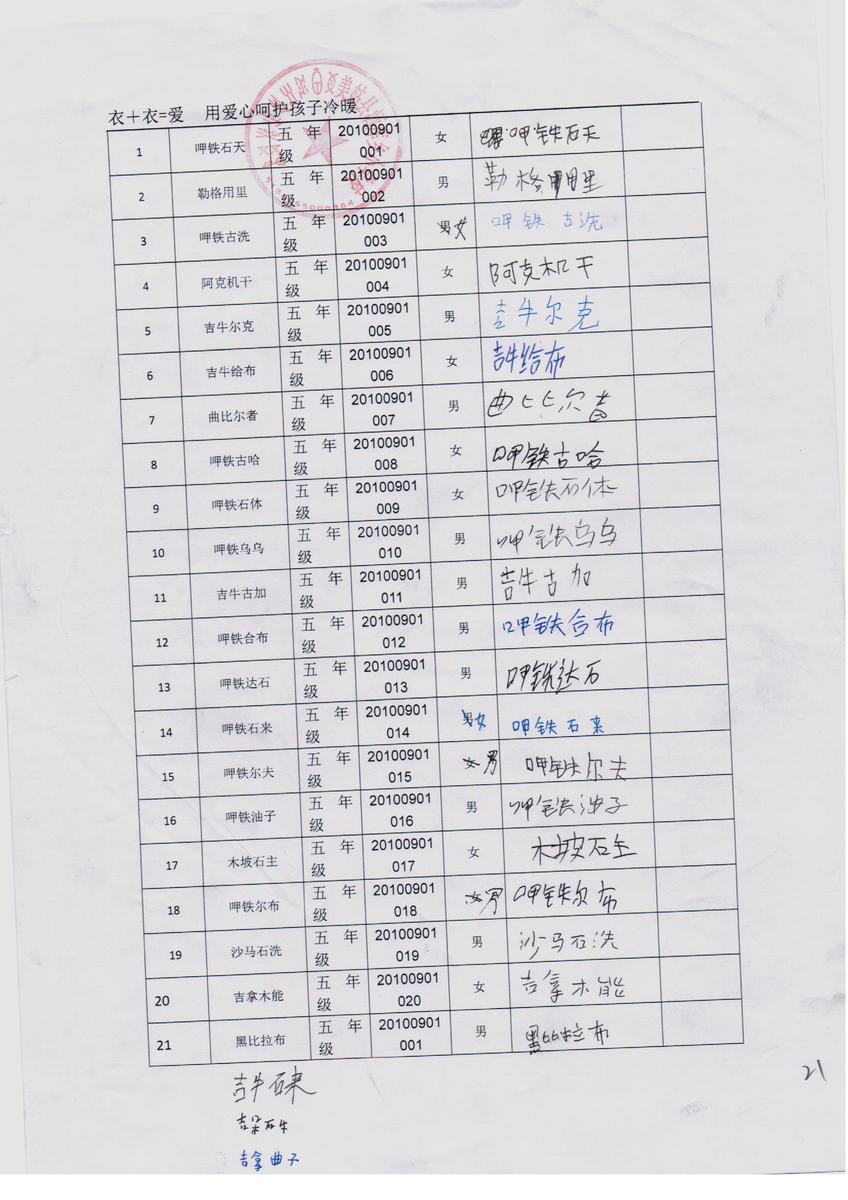 衣+衣=爱 用爱心呵护孩子冷暖
1 呷铁石天 五年级 20100901001 女 呷铁石天
2 勒格用里 五年级 20100901002 男 勒格用里
3 呷铁古洗 五年级 20100901003 男女 呷铁古洗
4 阿克机干 五年级 20100901004 女 阿克机干
5 吉牛尔克 五年级 20100901005 男 吉牛尔克
6 吉牛给布 五年级 20100901006 女 吉牛给布
7 曲比尔者 五年级 20100901007 男 曲比尔者
8 呷铁古哈 五年级 20100901008 女 呷铁古哈
9 呷铁石体 五年级 20100901009 女 呷铁石体
10 呷铁乌乌 五年级 20100901010 男 呷铁乌乌
11 吉牛古加 五年级 20100901011 男 吉牛古加
12 呷铁合布 五年级 20100901012 男 呷铁合布
13 呷铁达石 五年级 20100901013 男 呷铁达石
14 呷铁石来 五年级 20100901014 男女 呷铁石来
15 呷铁尔夫 五年级 20100901015 女男 呷铁尔夫
16 呷铁油子 五年级 20100901016 男 呷铁油子
17 木坡石主 五年级 20100901017 女 木坡石主
18 呷铁尔布 五年级 20100901018 女男 呷铁尔布
19 沙马石洗 五年级 20100901019 男 沙马石洗
20 吉拿木能 五年级 20100901020 女 吉拿木能
21 黑比拉布 五年级 20100901001 男 黑比拉布
吉牛石来
21
吉拿曲子